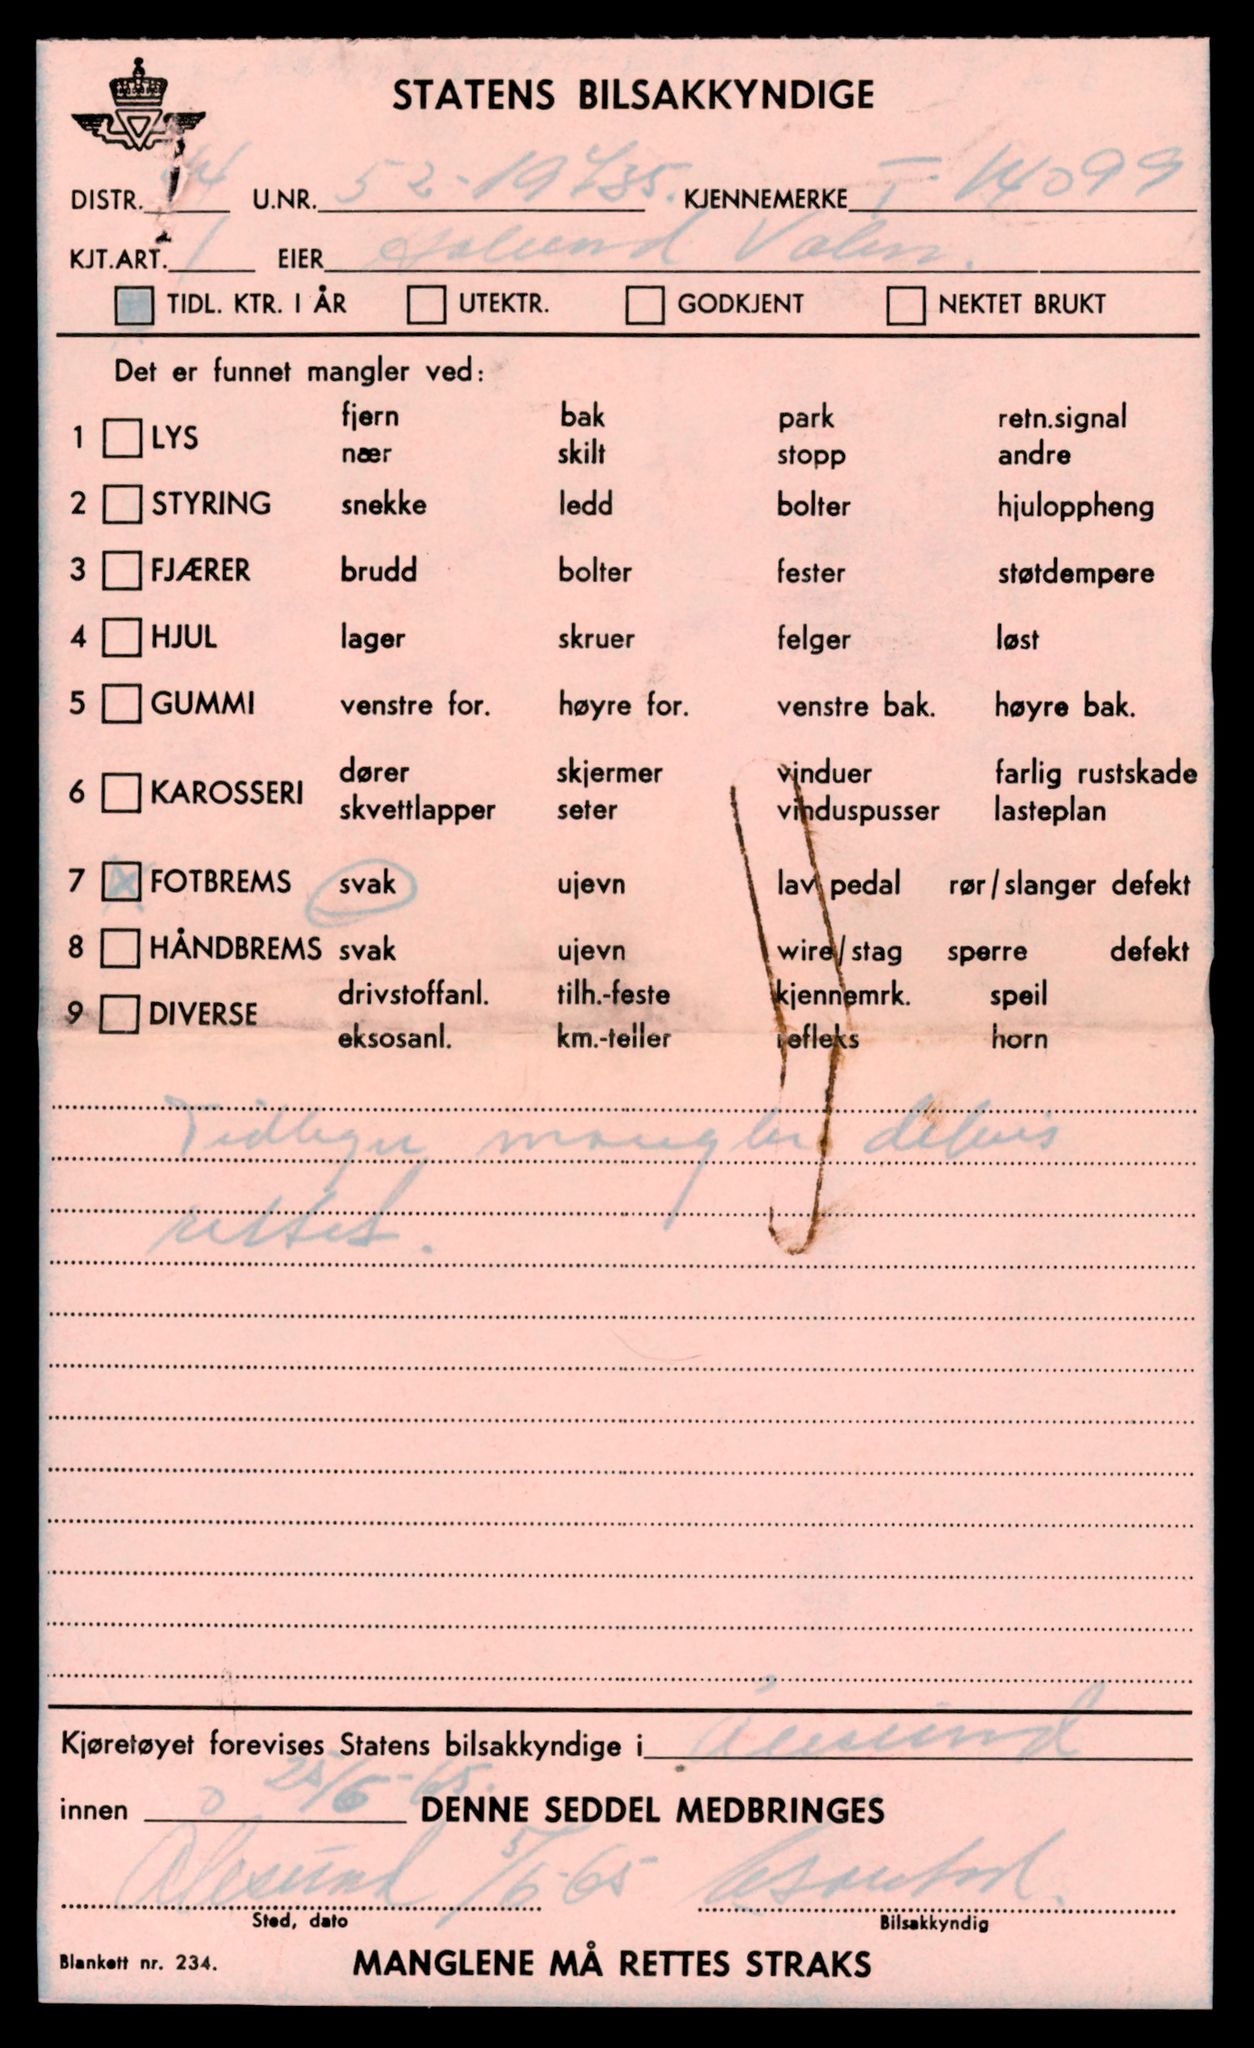 STATENS BILSAKKYNDIGE
DISTR. 14 U.NR. 52-19735. KJENNEMERKE T-14099
KJT.ART. 1 EIER Valen.
TIDL. KTR. I ÅR UTEKTR. GODKJENT NEKTET BRUKT
Det er funnet mangler ved:
1 LYS fjern bak park retn.signal
nær skilt stopp andre
2 STYRING snekke ledd bolter hjuloppheng
3 FJÆRER brudd bolter fester støtdempere
4 HJUL lager skruer felger løst
5 GUMMI venstre for. høyre for. venstre bak. høyre bak.
6 KAROSSERI dører skjermer vinduer farlig rustskade
skvettlapper seter vinduspusser lasteplan
7 X FOTBREMS svak ujevn lav pedal rør/slanger defekt
8 HÅNDBREMS svak ujevn wire/stag sperre defekt
9 DIVERSE drivstoffanl. tilh.-feste kjennemrk. speil
eksosanl. km.-teller refleks horn
Tidliger mangler delvis
rettet.
Kjøretøyet forevises Statens bilsakkyndige i Ålesund
innen 25/6-65. DENNE SEDDEL MEDBRINGES
Ålesund 5/6-65
Sted, dato Bilsakkyndig
Blankett nr. 234. MANGLENE MÅ RETTES STRAKS